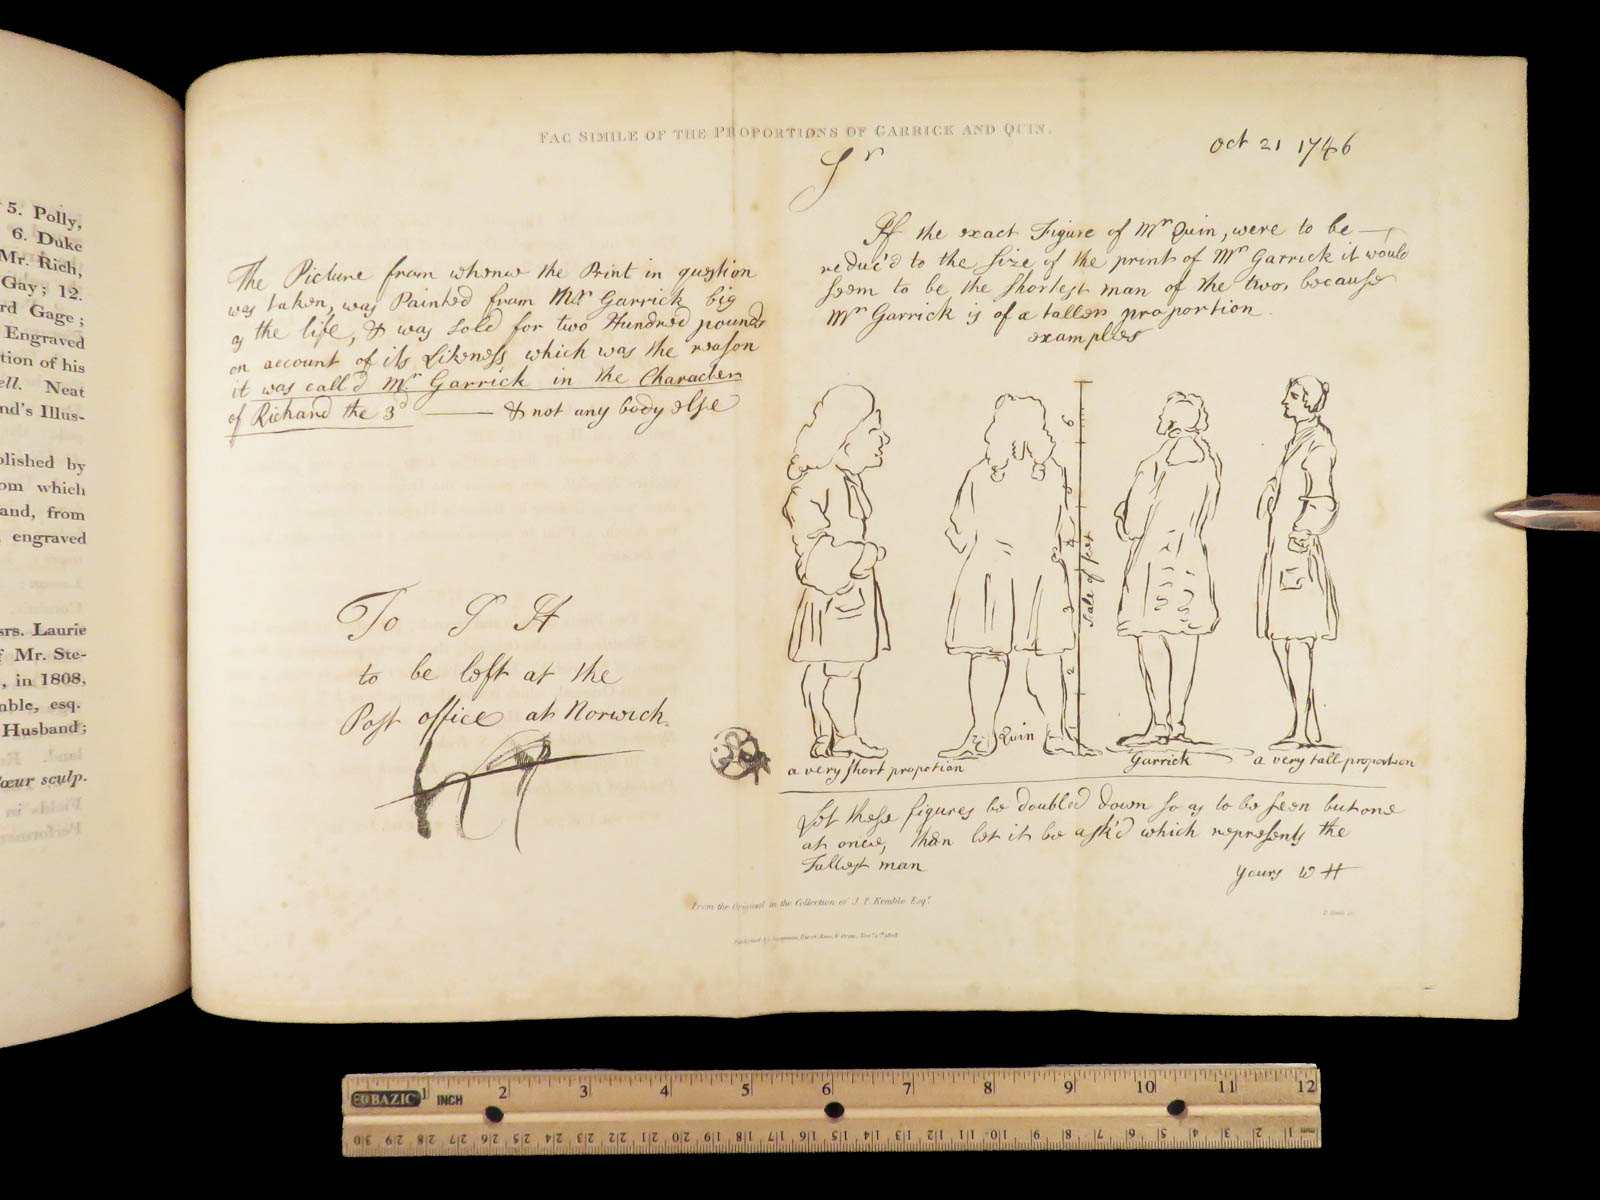 5. Polly,
6. Duke
Mr. Rich,
Gay; 12.
rd Gage;
Engraved
tion of his
ell. Neat
nd's Illus-
olished by
om which
and, from
engraved
srs. Laurie
f Mr. Ste-
, in 1808,
nble, esq.
Husband;
œur sculp.
FAC SIMILE OF THE PROPORTIONS OF GARRICK AND QUIN.
Oct 21 1746
Sr
The Picture from whence the Print in question
was taken, was Painted from Mr Garrick big
as the life, & was sold for two Hundred pounds
on account of its Likeness which was the reason
it was call'd Mr Garrick in the Character
of Richard the 3d —— & not any body else
To S H
to be left at the
Post office at Norwich
If the exact Figure of Mr Quin, were to be —
reduc'd to the size of the print of Mr Garrick it would
seem to be the shortest man of the two, because
Mr Garrick is of a taller proportion.
examples
6
5
4
3
2
Scale of feet
Quin
Garrick
a very short propotion
a very tall proportion
Let these figures be doubled down so as to be seen but one
at once, then let it be ask'd which represents the
Tallest man
Yours W H
From the Original in the Collection of J. P. Kemble Esqr.
BAZIC
1 INCH 2 3 4 5 6 7 8 9 10 11 12
30 29 28 27 26 25 24 23 22 21 20 19 18 17 16 15 14 13 12 11 10 9 8 7 6 5 4 3 2 1 mm